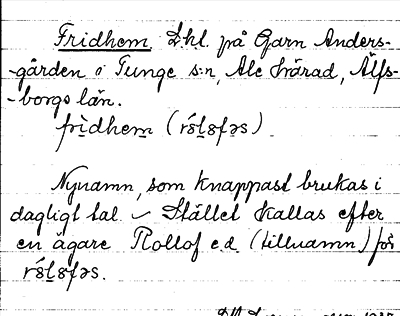 Fridhem. Lhl. på Garn Anders-
-gården i Tunge s:n, Ale härad, Älfs-
-borgs län.
fridhem (róləfəs)
Nynamn, som knappast brukas i
dagligt tal – Stället kallas efter
en ägare Rollof e.d. (tillnamn) för
róləfəs.